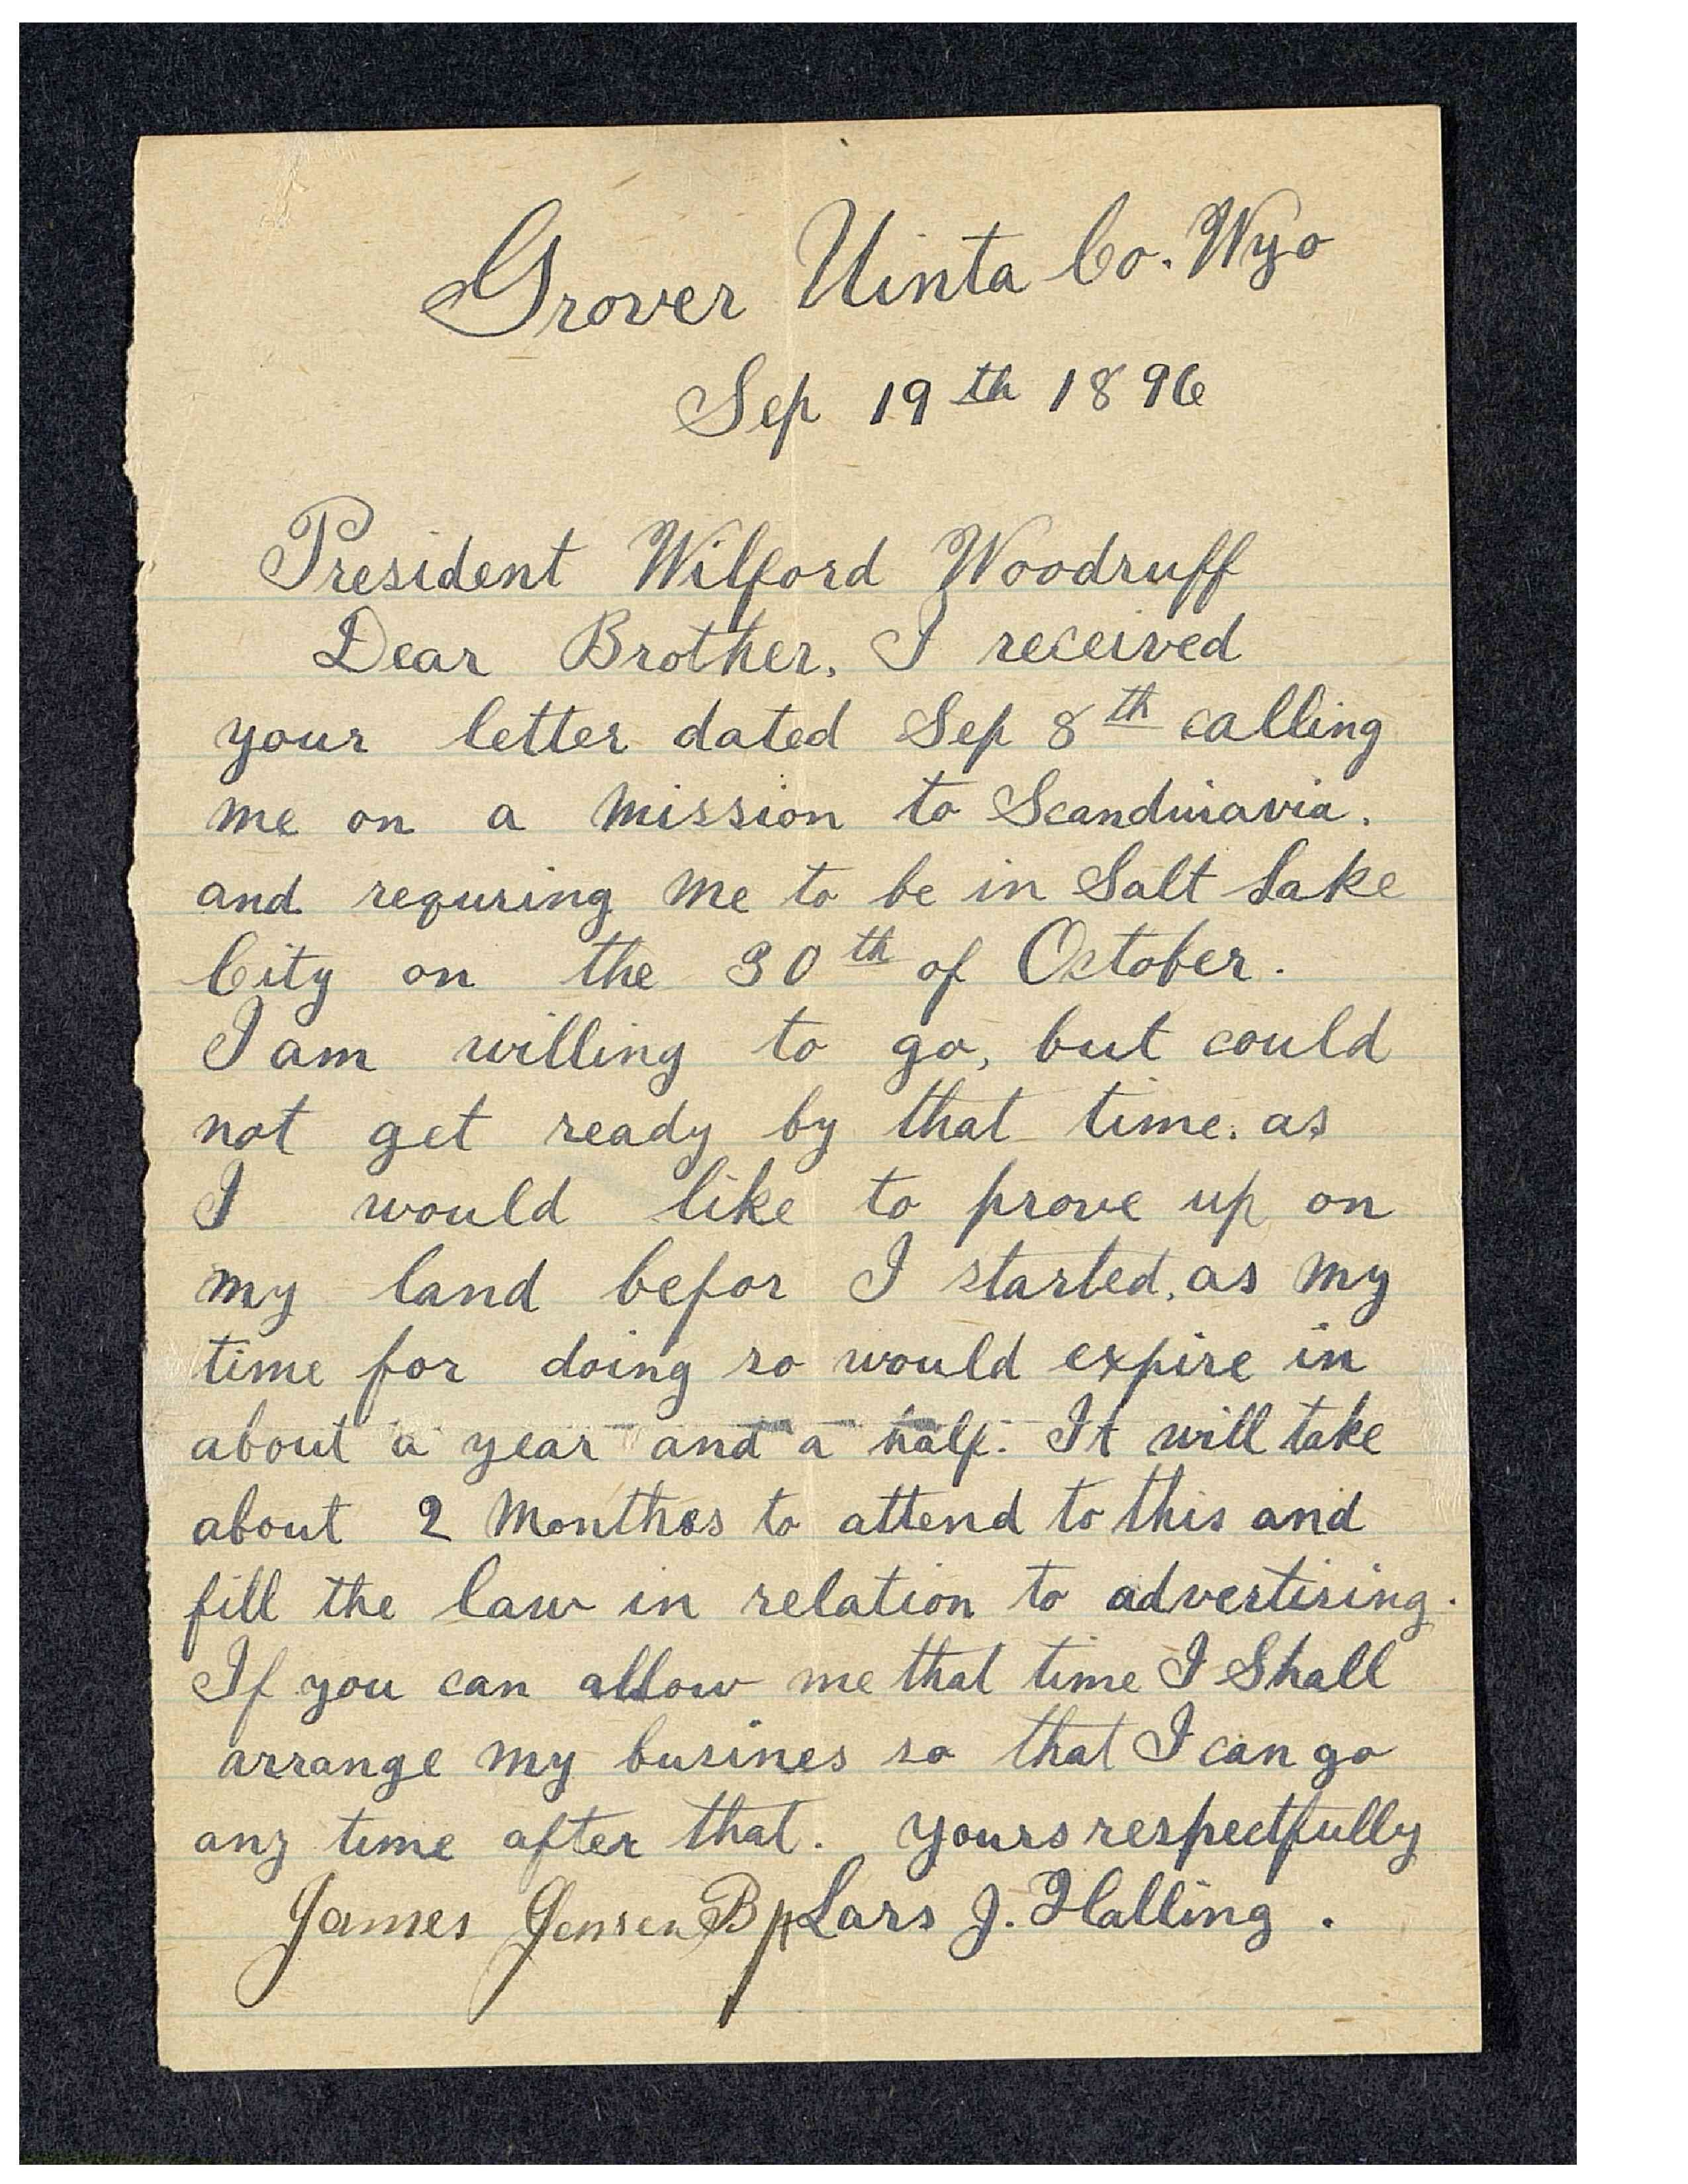 Grover Uinta Co. Wyo
Sep 19th 1896
President Wilford Woodruff
Dear Brother, I received
your letter dated Sep 8th calling
me on a mission to Scandinavia.
and requring me to be in Salt Lake
City on the 30th of October.
I am willing to go, but could
not get ready by that time. as
I would like to prove up on
my land befor I started, as my
time for doing so would expire in
about a year and a half. It will take
about 2 Monthes to attend to this and
fill the law in relation to advertising.
If you can allow me that time I Shall
arrange my busines so that I can go
any time after that. yours respectfully
James Jensen Bp Lars J. Halling.